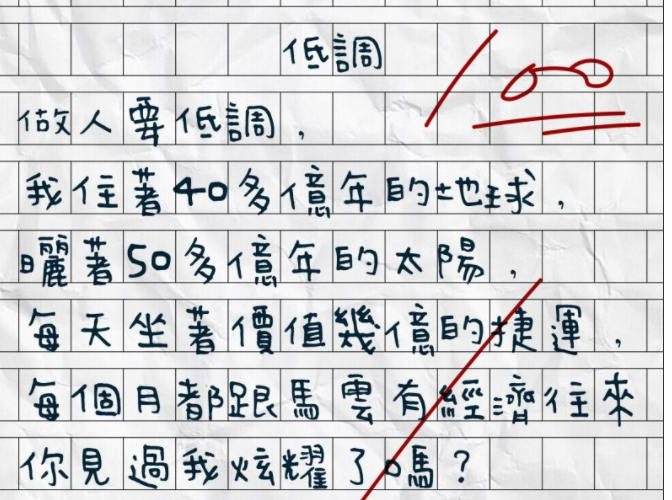 低調
100
做人要低調，
我住著40多億年的地球，
曬著50多億年的太陽，
每天坐著價值幾億的捷運，
每個月都跟馬雲有經濟往來
你見過我炫耀了嗎？